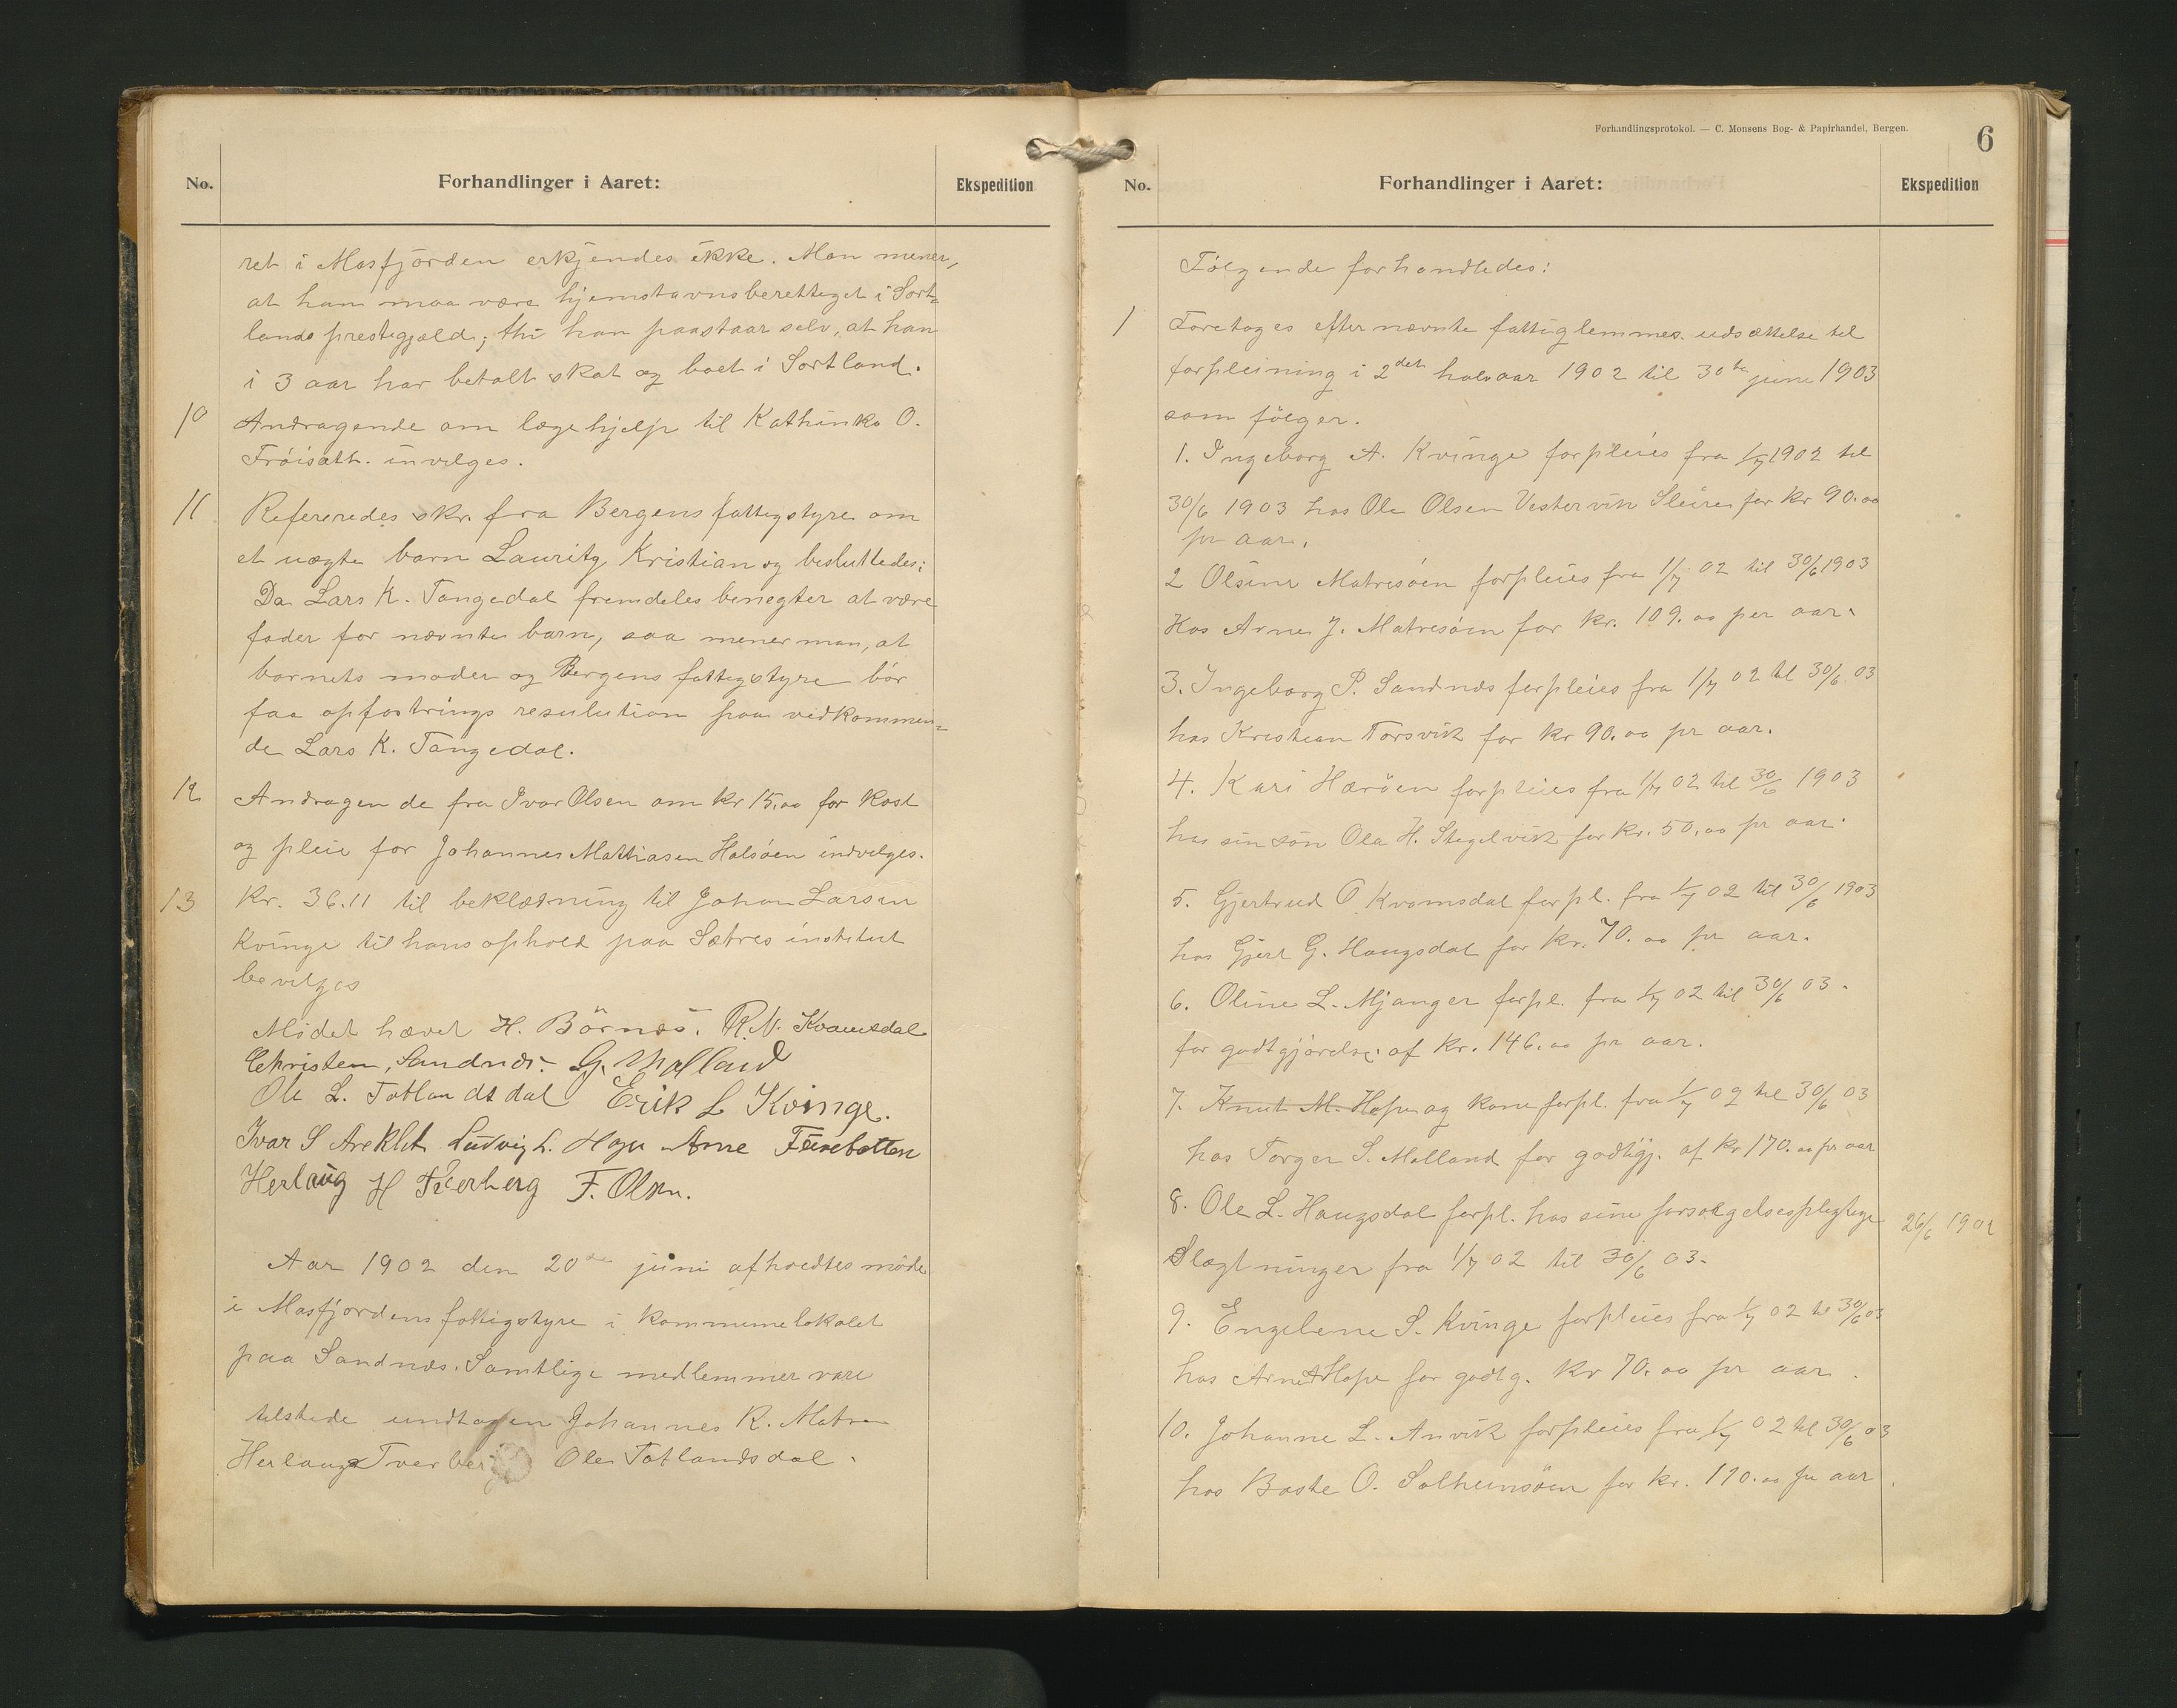 No.
Forhandlinger i Aaret:
Ekspedition
ret i Masfjorden erkjendes ikke. Man mener,
at han maa være hjemstavnsberettiget i Sort=
lands prestegjæld; thi han paastaar selv, at han
i 3 aar har betalt skat og boet i Sortland.
10 Andragende om lægehjelp til Kathinka O.
Fröisætt. invilges.
11 Refereredes skr. fra Bergens fattigstyre om
et uægte barn Lauritz Kristian og besluttedes:
Da Lars K. Tangedal fremdeles benegter at være
fader for nævnte barn, saa mener man, at
barnets moder og Bergens fattigstyre bör
faa opfostrings resulution paa vedkommen=
de Lars K. Tangedal.
12 Andragende fra Ivar Olsen om kr 15,00 for kost
og pleie for Johannes Mathiasen Halsöen indvilges.
13 Kr. 36.11 til beklædning til Johan Larsen
Kvinge til hans ophold paa Sætres institut
bevilges
Mödet hævet H. Börnes. R. N. Kvamsdal
Christen, Sandnes. G. Molland
Ole L. Totlandsdal Erik L Kvinge.
Ivar S Areklet Ludvig L. Hope Arne Furebotten
Herlaug H Tverberg F. Olsen.
Aar 1902 den 20de juni afholdtes möde
i Masfjordens fattigstyre i kommunelokalet
paa Sandnes. Samtlige medlemmer vare
tilstede undtagen Johannes R. Matre
Herlaug Tverberg Ole Totlandsdal.
Forhandlingsprotokol. — C. Monsens Bog- & Papirhandel, Bergen.
6
No.
Forhandlinger i Aaret:
Ekspedition
Fölgende forhandledes:
1 Foretoges efternævnte fattiglemmes udsættelse til
forpleining i 2det halvaar 1902 til 30te juni 1903
som fölger.
1. Ingeborg A. Kvinge forpleies fra 1/7 1902 til
30/6 1903 hos Ole Olsen Vestervik Sleire for kr 90.00
pr aar.
2 Olsine Matresöen forpleies fra 1/7 02 til 30/6 1903
Hos Arne J. Matresöen for kr. 109.00 per aar.
3. Ingeborg P. Sandnes forpleies fra 1/7 02 til 30/6 03
hos Kristian Torsvik for kr 90.00 pr aar.
4. Kari Hæröen forpleies fra 1/7 02 til 30/6 1903
hos sin sön Ola H. Stegelvik for kr. 50,00 pr aar.
5. Gjertrud O Kvamsdal forpl. fra 1/7 02 til 30/6 1903
hos Gjert G. Haugsdal for kr. 70.00 pr aar.
6. Oline L. Mjanger forpl. fra 1/7 02 til 30/6 03.
for godtgjörelse af kr. 146.00 pr aar.
7. Knut M. Hope og kone forpl. fra 1/7 02 til 30/6 03
hos Torger S. Molland for godtgj. af kr 170.00 pr aar
8. Ole L. Haugsdal forpl. hos sine forsörgelsespligtige
Slægtninger fra 1/7 02 til 30/6 03.
26/6 1902
9. Engelene S. Kvinge forpleies fra 1/7 02 til 30/6 03
hos Arne A Hope for godtg. kr 70.00 pr aar.
10. Johanne L. Anvik forpleies fra 1/7 02 til 30/6 03
hos Baste O. Solheimsöen for kr. 110.00 pr aar.